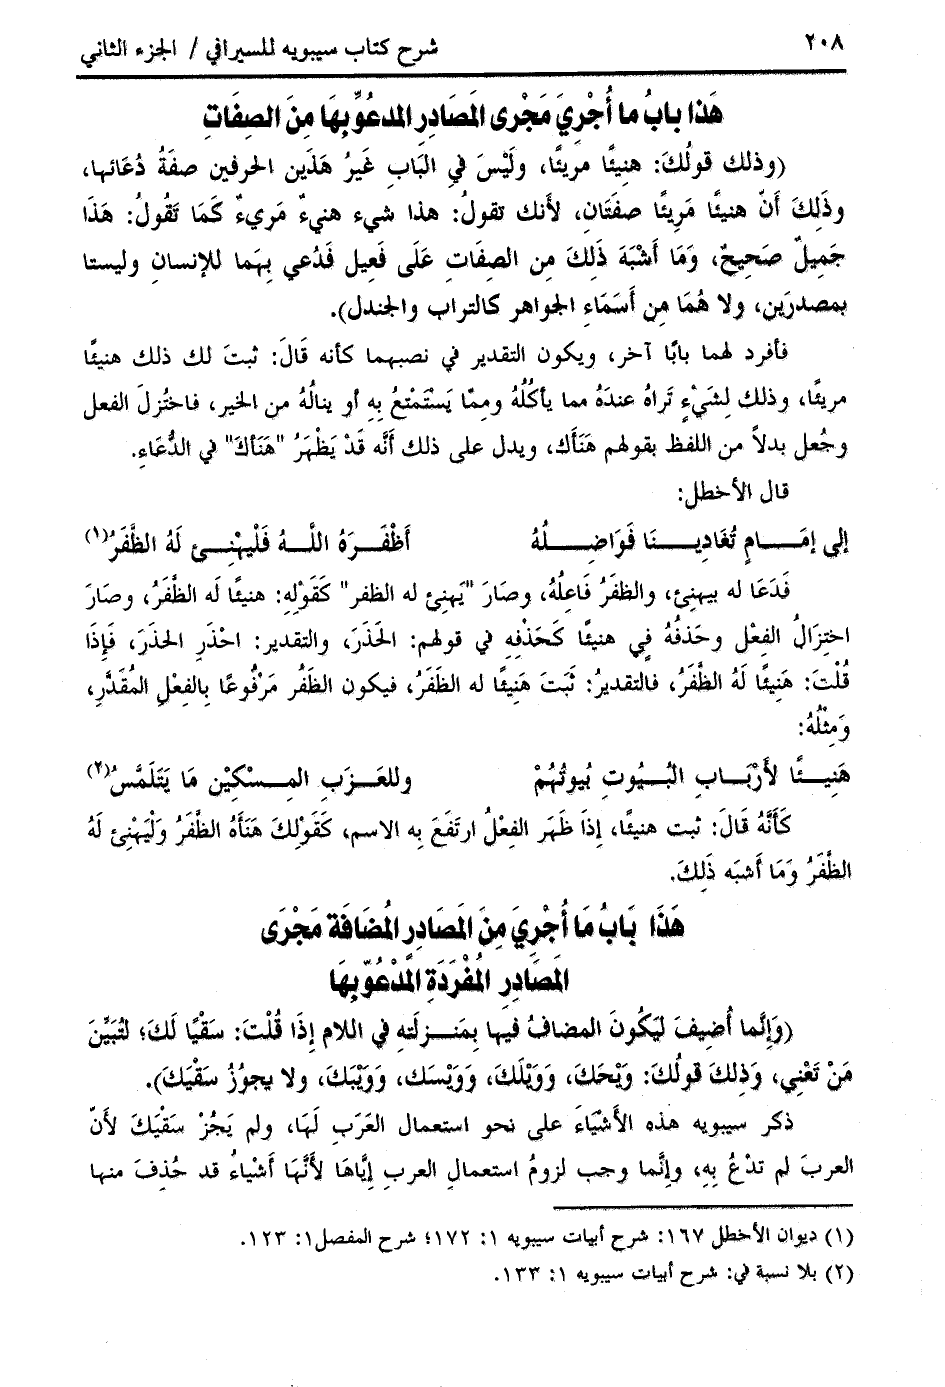 ٢٠٨ شرح كتاب سيبويه للسيرافي / الجزء الثاني
هَذا بابُ ما أُجْرِيَ مَجْرى المَصادِرِ المدعُوِّ بِهَا مِنَ الصفَاتِ
(وذلك قولُكَ: هنيئًا مريئًا، ولَيْسَ في البَابِ غَيرُ هَذَين الحرفين صفَةُ دُعَائها،
وذَلِكَ أَنّ هنيئًا مَرِيئًا صفتَانِ، لأنك تقولُ: هذا شيء هنيءٌ مَريءٌ كَمَا تَقُولُ: هَذَا
جَمِيلٌ صَحِيحٌ، وَمَا أَشْبَهَ ذَلِكَ مِن الصفَاتِ عَلَى فَعِيل فَدُعي بِهَما للإنسانِ وليستا
بمصدرَين، ولا هُمَا مِن أَسَمَاءِ الجواهر كالتراب والجندل).
فأفرد لهما بابًا آخر، ويكون التقدير في نصبهما كأنه قَالَ: ثبتَ لك ذلك هنيئًا
مريئًا، وذلك لِشَيْءٍ تَراهُ عندَهُ مما يأكُلُهُ وممَّا يَسْتَمْتعُ بِه أو ينالُهُ من الخير، فاختُزلَ الفعل
وجُعل بدلاً من اللفظ بقولهم هَنَأَك، ويدل على ذلك أَنَّه قَدْ يَظْهَرُ "هَنَأكَ" في الدُّعَاءِ.
قال الأخطل:
إلى إمَـــامٍ تُغَادِيــنَا فَوَاضِـــلُهُ أَظْفَـــرَهُ اللَّـــهُ فَلْيَهْنِـــئ لَهُ الظَّفَرُ(١)
فَدَعَا له بيهنِئ، والظفَرُ فَاعِلُهُ، وصَارَ "يَهنِئ له الظفر" كَقَوْلِهِ: هنيئًا لَه الظفَرُ، وصارَ
اختِزَالُ الفِعْل وحَذفُهُ فِي هنيئًا كَحَذفِه في قولهم: الحَذرَ، والتقدير: احْذَرِ الحذَرَ، فَإِذَا
قُلْتَ: هَنِيئًا لَهُ الظَّفَرُ، فالتقديرُ: ثَبَتَ هَنِيئًا له الظفَرُ، فيكون الظفَر مَرْفُوعًا بِالفعْلِ المُقَدَّرِ،
وَمِثْلُهُ:
هَنِيــئًا لأَرْبَــابِ البُــيُوتِ بُيوتُهُمْ وللعَــزَبِ المِــسْكِيْنِ مَا يَتَلَمَّسُ(٢)
كَأَنَّهُ قَالَ: ثبت هنيئًا، إذَا ظَهَر الفعْلُ ارتَفَعَ بِه الاسم، كَقَوْلكَ هَنَأَهُ الظَّفَرُ وَلْيَهْنِئ لَهُ
الظَّفَرُ وَمَا أَشبَه ذَلِكَ.
هَذَا بَابُ مَا أُجْرِيَ مِنَ المَصَادِرِ المُضَافَة مَجْرَى
المَصَادِر المُفْرَدَةِ المَدْعُوِّ بِهَا
(وَإِنَّما أُضِيفَ لِيَكُونَ المضافُ فيها بِمَنــزلَتِه في اللام إِذَا قُلْتَ: سَقْيًا لَكَ؛ لتُبَيِّنَ
مَنْ تَعْنِي، وَذلِكَ قولُكَ: وَيْحَكَ، وَوَيْلَكَ، وَوَيْسَك، وَوَيْبَكَ، ولا يجوزُ سَقْيَكَ).
ذكر سيبويه هذه الأَشْيَاءَ على نحو استعمال العَرَبِ لَهَا، ولم يَجُزْ سَقْيَكَ لأَنّ
العربَ لم تدْعُ بِهِ، وإِنَّما وجب لزومُ استعمالِ العربِ إيَّاهَا لأَنَّهَا أَشْيَاءُ قد حُذفَ منها
(١) ديوان الأخطل ١٦٧: شرح أبيات سيبويه ١: ١٧٢؛ شرح المفصل١: ١٢٣.
(٢) بلا نسبة في: شرح أبيات سيبويه ١: ١٣٣.